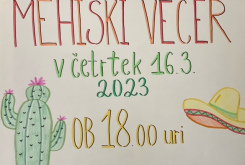 MEHIŠKI VEČER
v četrtek 16.3.
2023
OB 18.00 uri